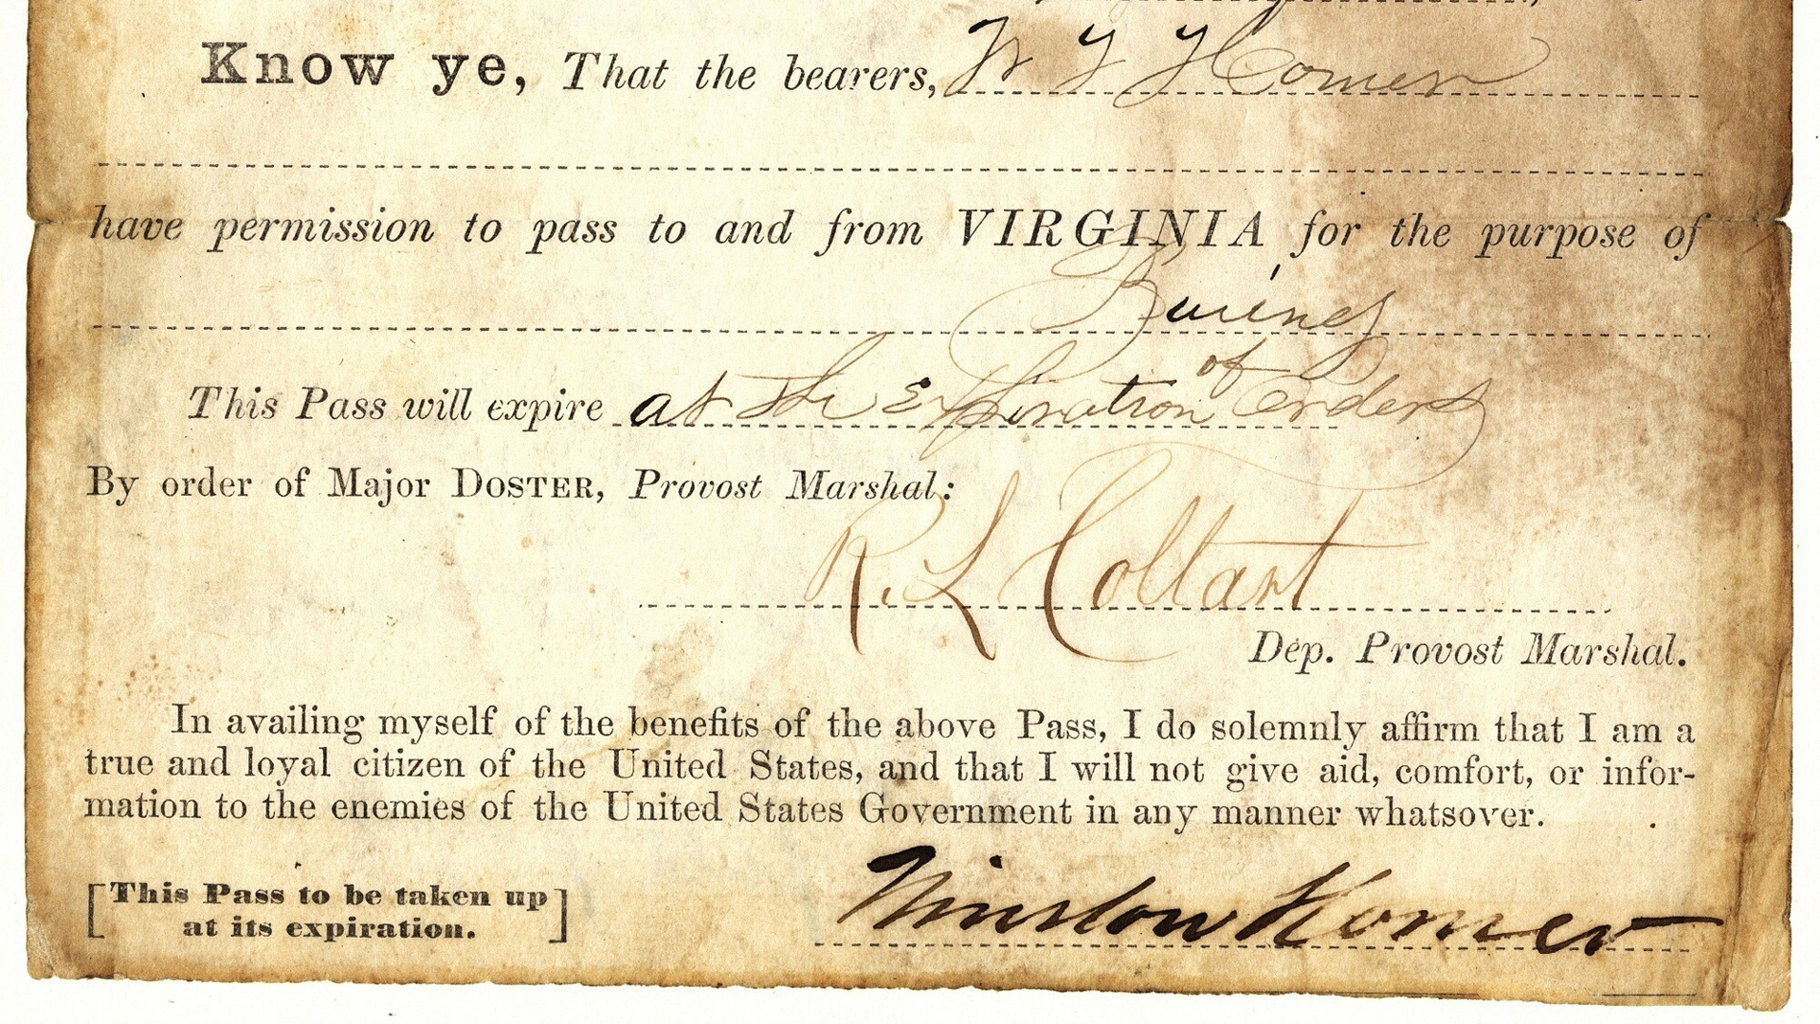 Know ye, That the bearers, W Homer
have permission to pass to and from VIRGINIA for the purpose of
This Pass will expire at the Expiration of Orders
By order of Major DOSTER, Provost Marshal:
R. L Coltart
Dep. Provost Marshal.
In availing myself of the benefits of the above Pass, I do solemnly affirm that I am a
true and loyal citizen of the United States, and that I will not give aid, comfort, or infor-
mation to the enemies of the United States Government in any manner whatsover.
[This Pass to be taken up
at its expiration.]
Winslow Homer